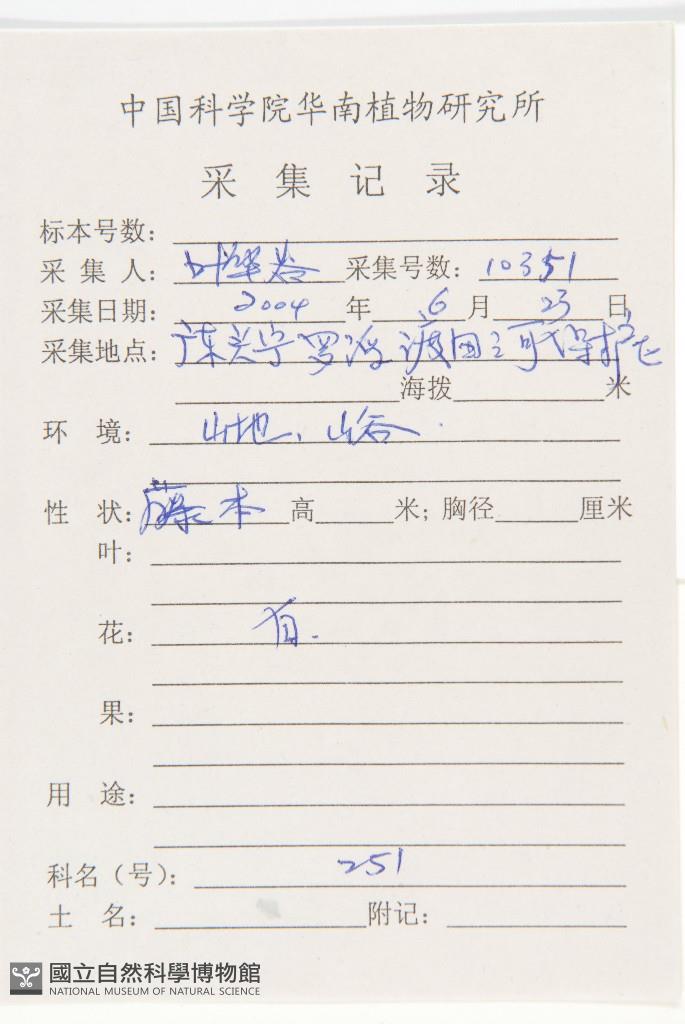 中国科学院华南植物研究所
采集记录
标本号数：
采集人：叶华谷 采集号数：10351
采集日期：2004年6月23日
采集地点：广东兴宁罗浮渡田河保护区
海拨 米
环境：山地、山谷.
性状：藤本 高 米；胸径 厘米
叶：
花：白.
果：
用途：
科名（号）：251
土名： 附记：
國立自然科學博物館
NATIONAL MUSEUM OF NATURAL SCIENCE